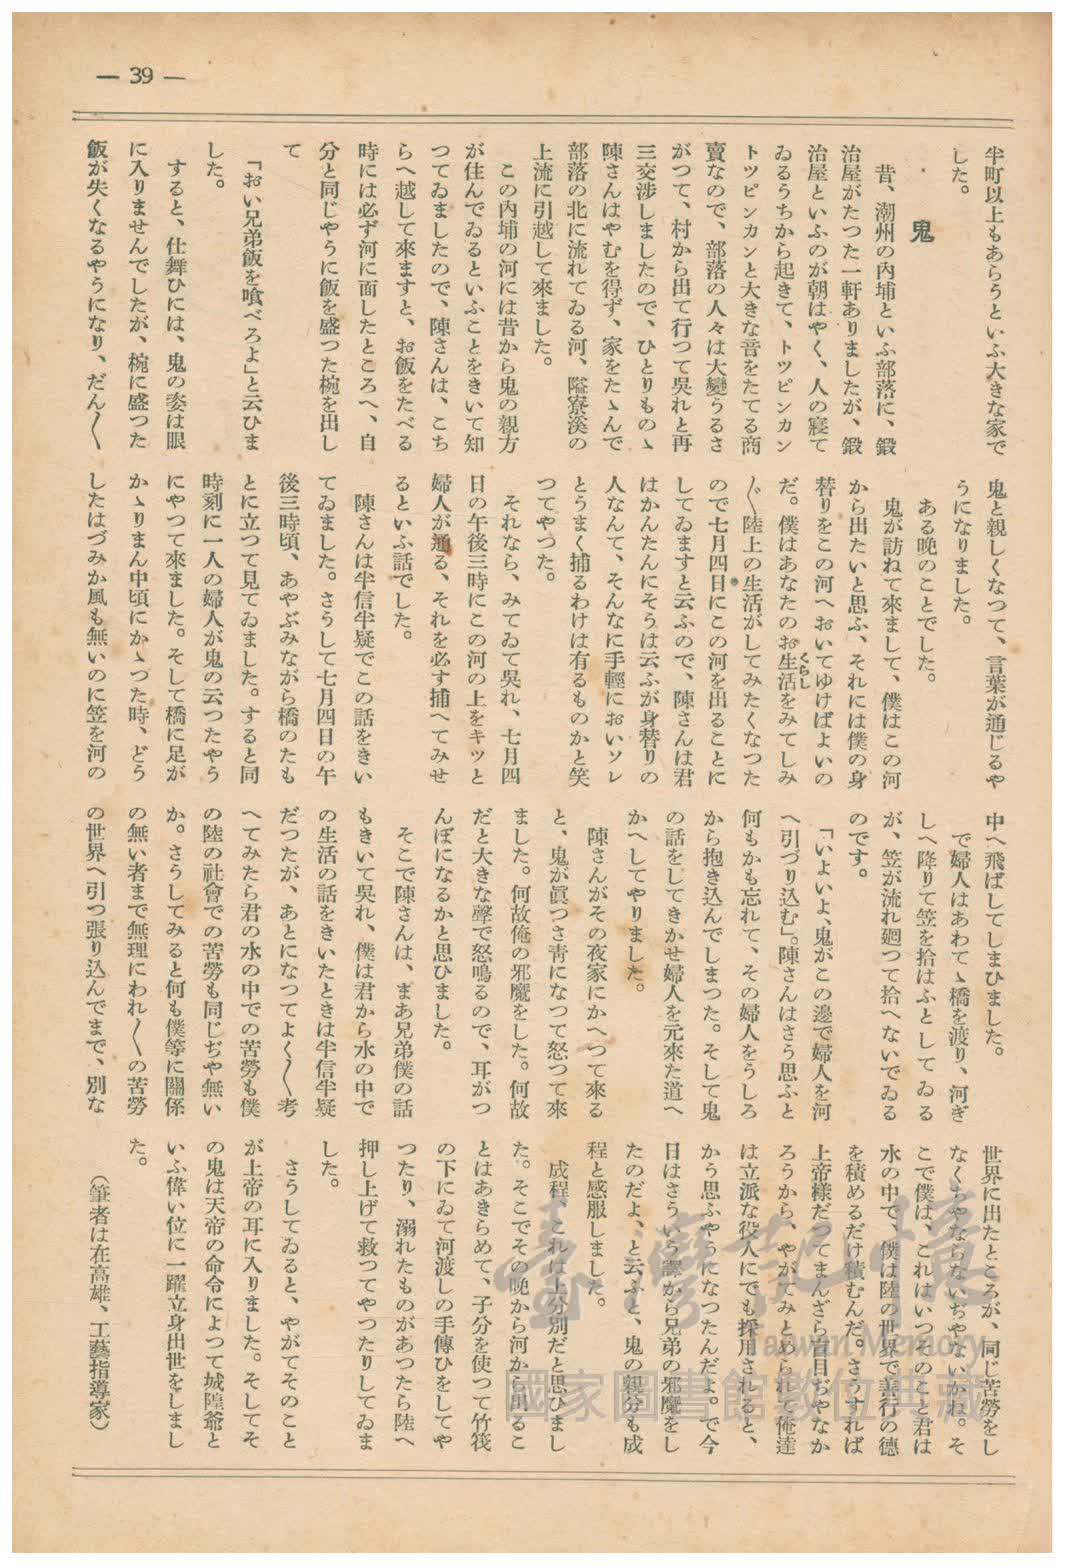 — 39 —
半町以上もあらうといふ大きな家で
した。
鬼
昔、潮州の內埔といふ部落に、鍛
治屋がたつた一軒ありましたが、鍛
治屋といふのが朝はやく、人の寢て
ゐるうちから起きて、トツピンカン
トツピンカンと大きな音をたてる商
賣なので、部落の人々は大變うるさ
がつて、村から出て行つて吳れと再
三交涉しましたので、ひとりものゝ
陳さんはやむを得ず、家をたゝんで
部落の北に流れてゐる河、隘寮溪の
上流に引越して來ました。
この內埔の河には昔から鬼の親方
が住んでゐるといふことをきいて知
つてゐましたので、陳さんは、こち
らへ越して來ますと、お飯をたべる
時には必ず河に面したところへ、自
分と同じやうに飯を盛つた椀を出し
て
「おい兄弟飯を喰べろよ」と云ひま
した。
すると、仕舞ひには、鬼の姿は眼
に入りませんでしたが、椀に盛つた
飯が失くなるやうになり、だん〱
鬼と親しくなつて、言葉が通じるや
うになりました。
ある晚のことでした。
鬼が訪ねて來まして、僕はこの河
から出たいと思ふ、それには僕の身
替りをこの河へおいてゆけばよいの
だ。僕はあなたのお生活をみてしみ
くらし
〲陸上の生活がしてみたくなつた
ので七月四日にこの河を出ることに
してゐますと云ふので、陳さんは君
はかんたんにそうは云ふが身替りの
人なんて、そんなに手輕においソレ
とうまく捕るわけは有るものかと笑
つてやつた。
それなら、みてゐて吳れ、七月四
日の午後三時にこの河の上をキツと
婦人が通る、それを必す捕へてみせ
るといふ話でした。
陳さんは半信半疑でこの話をきい
てゐました。さうして七月四日の午
後三時頃、あやぶみながら橋のたも
とに立つて見てゐました。すると同
時刻に一人の婦人が鬼の云つたやう
にやつて來ました。そして橋に足が
かゝりまん中頃にかゝつた時、どう
したはづみか風も無いのに笠を河の
中へ飛ばしてしまひました。
で婦人はあわてゝ橋を渡り、河ぎ
しへ降りて笠を拾はふとしてゐる
が、笠が流れ廻つて拾へないでゐる
のです。
「いよいよ、鬼がこの邊で婦人を河
へ引づり込む」。陳さんはさう思ふと
何もかも忘れて、その婦人をうしろ
から抱き込んでしまつた。そして鬼
の話をしてきかせ婦人を元來た道へ
かへしてやりました。
陳さんがその夜家にかへつて來る
と、鬼が眞つさ靑になつて怒つて來
ました。何故俺の邪魔をした。何故
だと大きな聲で怒鳴るので、耳がつ
んぼになるかと思ひました。
そこで陳さんは、まあ兄弟僕の話
もきいて吳れ、僕は君から水の中で
の生活の話をきいたときは半信半疑
だつたが、あとになつてよく〱考
へてみたら君の水の中での苦勞も僕
の陸の社會での苦勞も同じぢや無い
か。さうしてみると何も僕等に關係
の無い者まで無理にわれ〱の苦勞
の世界へ引つ張り込んでまで、別な
世界に出たところが、同じ苦勞をし
なくちやならないぢやないかね。そ
こで僕は、これはいつそのこと君は
水の中で、僕は陸の世界で善行の德
を積めるだけ積むんだ。さうすれば
上帝樣だつてまんざら盲目ぢやなか
ろうから、やがてみとめられて俺達
は立派な役人にでも採用されると、
かう思ふやうになつたんだよ。で今
日はさういう譯から兄弟の邪魔をし
たのだよ、と云ふと、鬼の親分も成
程と感服しました。
成程、これは上分別だと思ひまし
た。そこでその晚から河から出るこ
とはあきらめて、子分を使つて竹筏
の下にゐて河渡しの手傳ひをしてや
つたり、溺れたものがあつたら陸へ
押し上げて救つてやつたりしてゐま
した。
さうしてゐると、やがてそのこと
が上帝の耳に入りました。そしてそ
の鬼は天帝の命令によつて城隍爺と
いふ偉い位に一躍立身出世をしまし
た。
（筆者は在高雄、工藝指導家）
臺灣記憶
Taiwan Memory
國家圖書館數位典藏